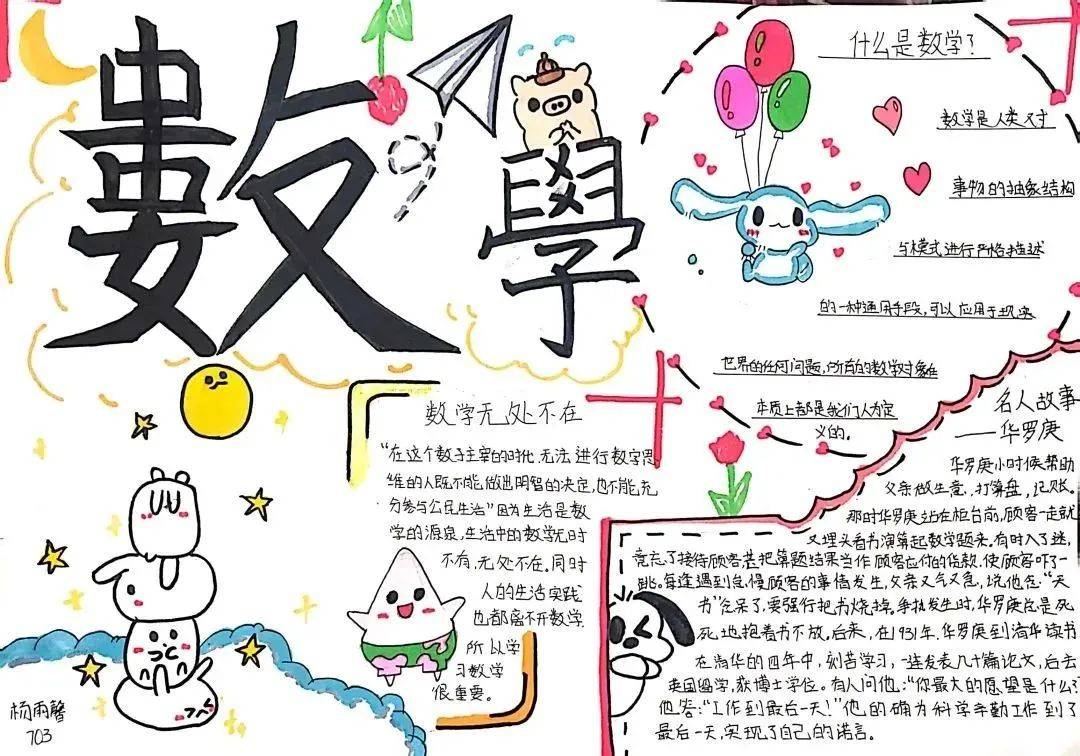 數學
什么是数学？
数学是人类对
事物的抽象结构
与模式进行严格描述
的一种通用手段，可以应用于现实
世界的任何问题，所有的数学对象在
本质上都是我们人为定
义的。
数学无处不在
“在这个数字主宰的时代，无法进行数字思
维的人既不能，做出明智的决定，也不能充
分参与公民生活”因为生活是数
学的源泉，生活中的数学无时
不有，无处不在。同时
人的生活实践
也都离不开数学
所以学
习数学
很重要。
名人故事
——华罗庚
华罗庚小时候帮助
父亲做生意，打算盘，记账。
那时华罗庚站在柜台前，顾客一走就
又埋头看书演算起数学题来。有时入了迷，
竟忘了接待顾客甚把算题结果当作顾客应付的货款，使顾客吓了一
跳。每逢遇到怠慢顾客的事情发生，父亲又气又急，说他念“天
书”念呆了，要强行把书烧掉。争执发生时，华罗庚总是死
死地抱着书不放，后来，在1931年，华罗庚到清华读书
在清华的四年中，刻苦学习，一连发表几十篇论文，后去
英国留学，获博士学位。有人问他：“你最大的愿望是什么？”
他答：“工作到最后一天！”他的确为科学辛勤工作到了
最后一天，实现了自己的诺言。
杨雨馨
703